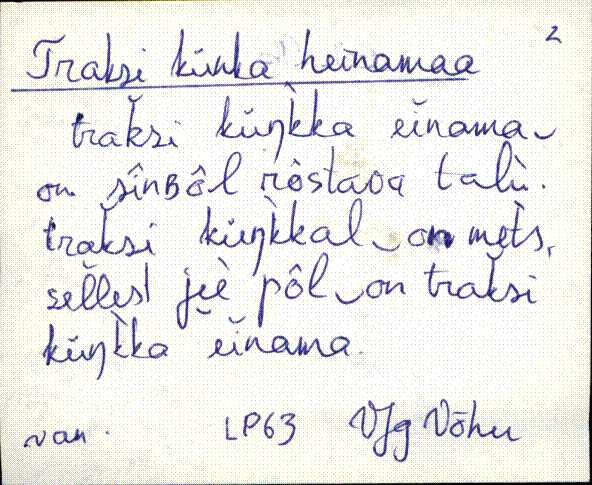 2
Traksi künka heinamaa
trak̆si küŋk̀ka ĕinama‿
on sînʙôl rôstaʋa talù.
trak̆si küŋk̀kal‿on mèts,
sĕl̆lest jeè pôl‿on trak̆si
küŋk̀ka ĕinama.
van. LP63 VJg Võhu